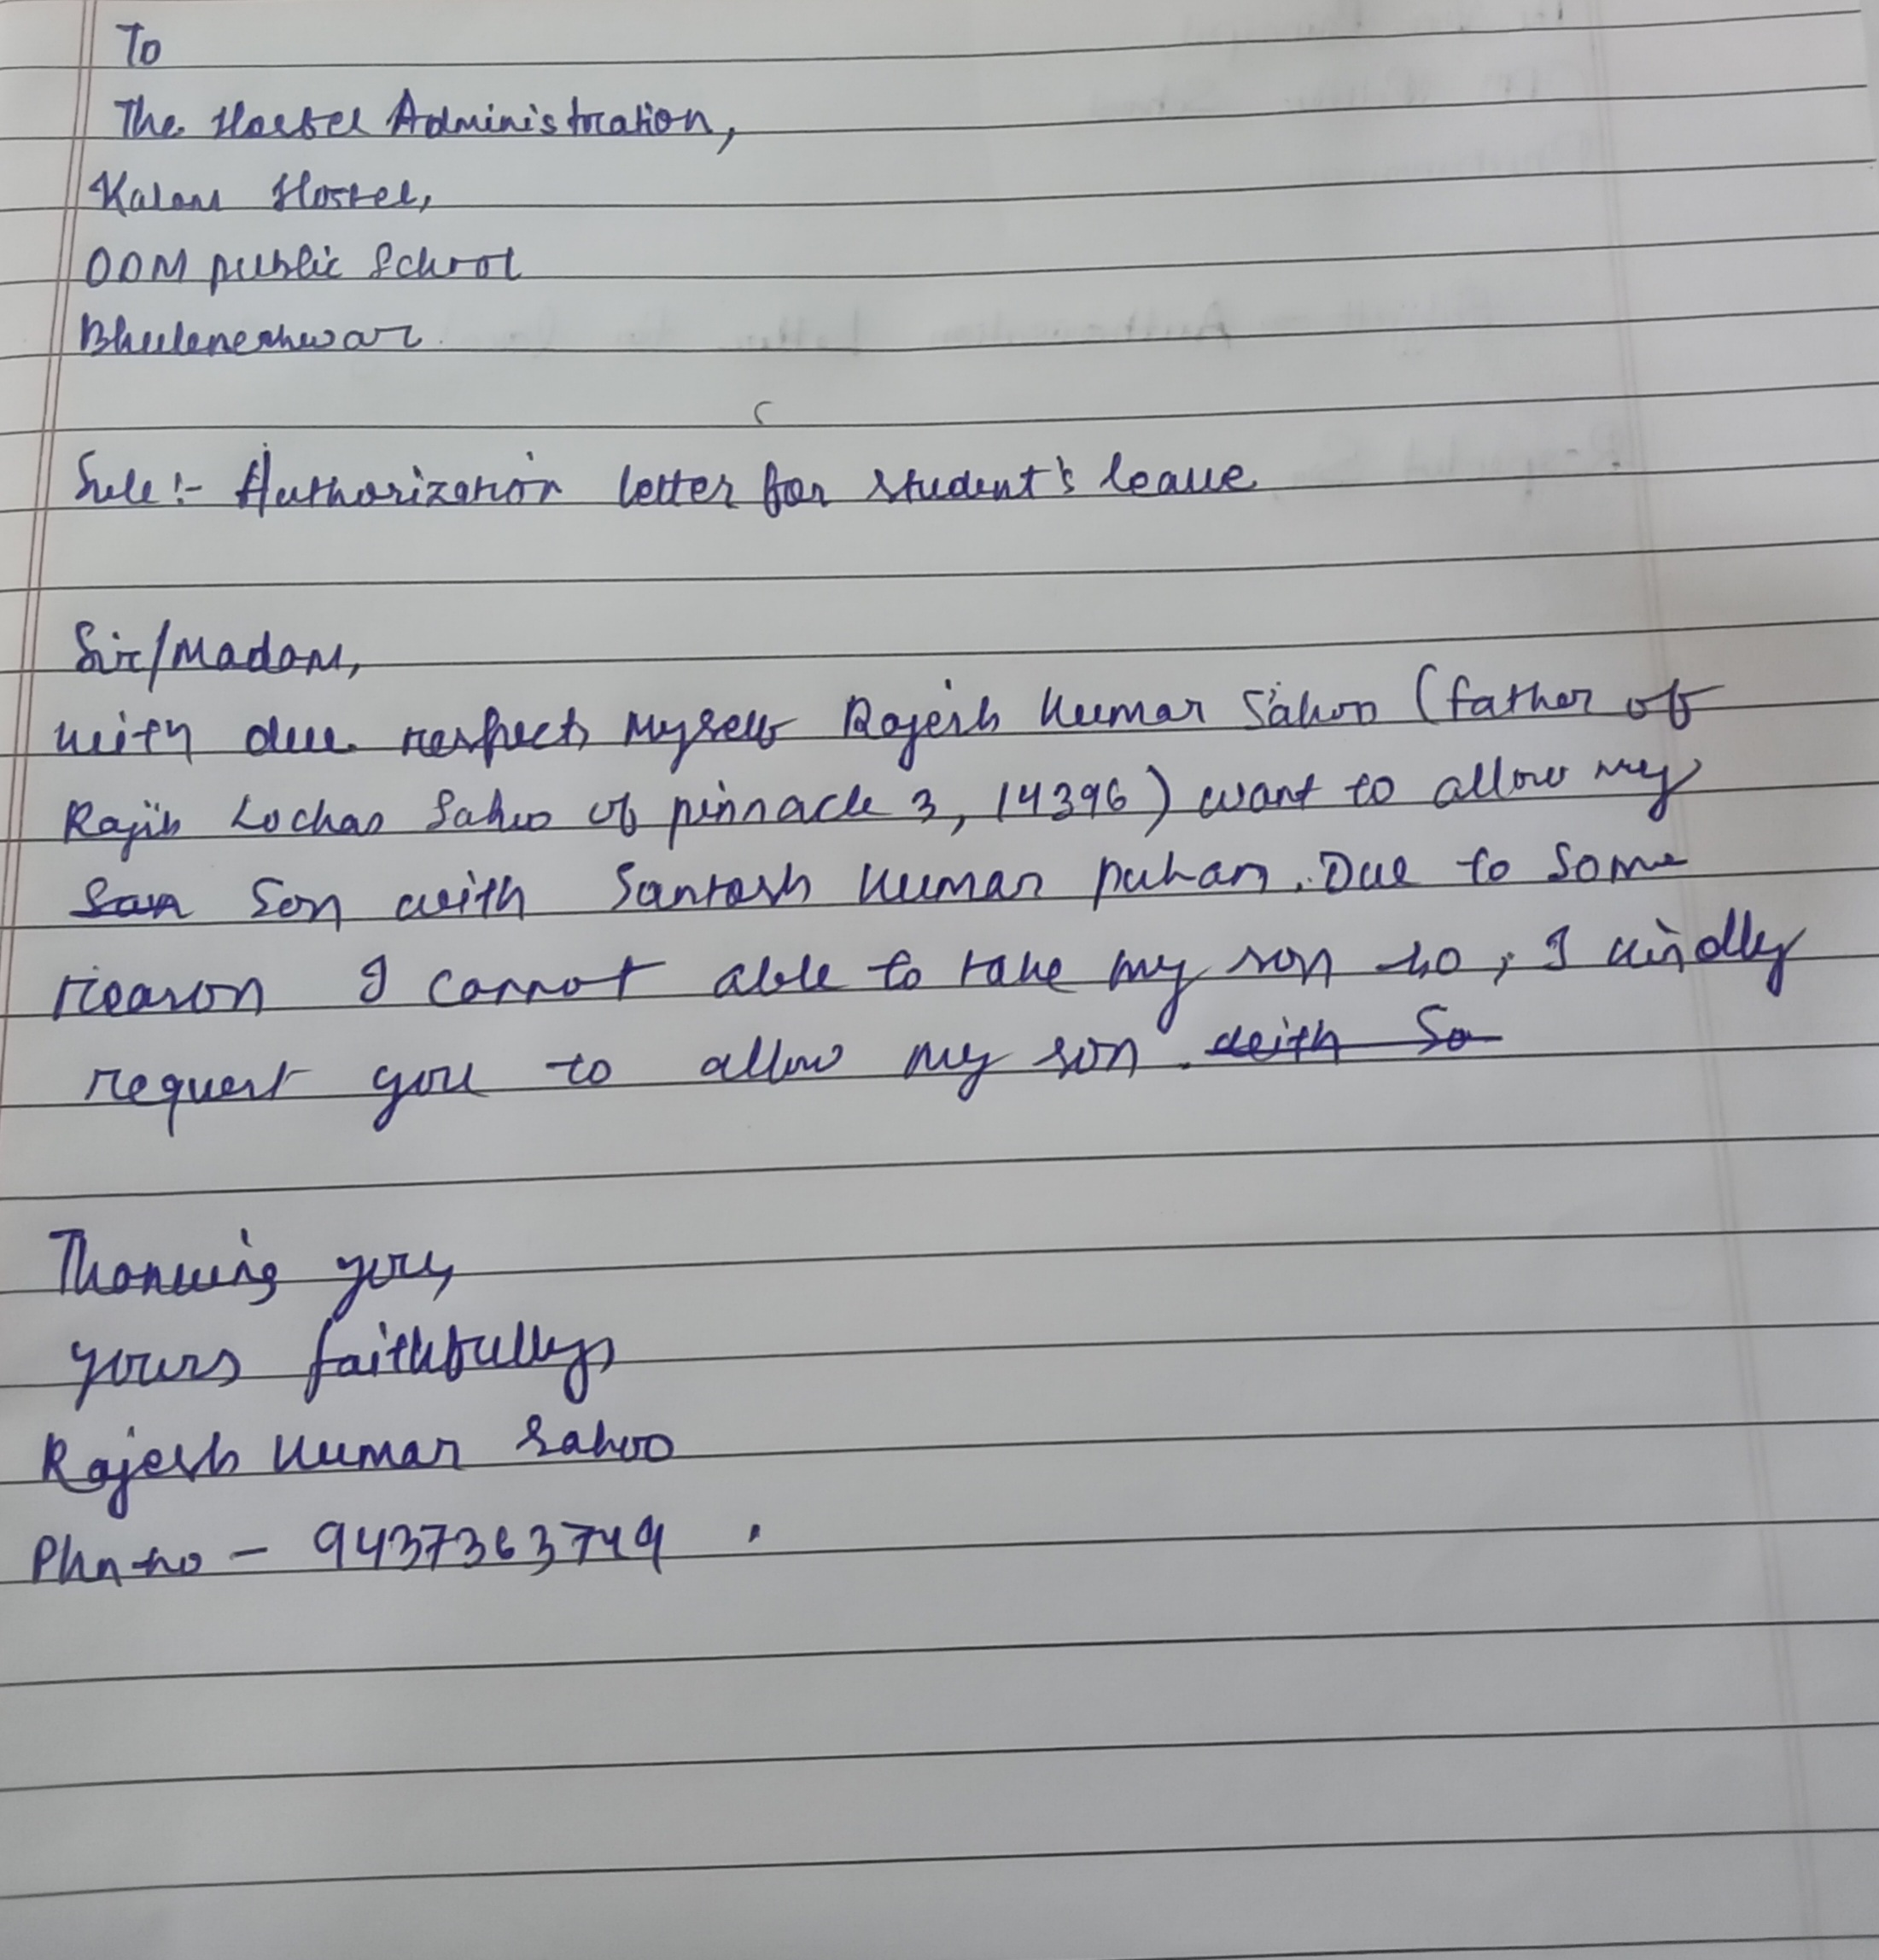 To
The Hostel Administration,
Kalam Hostel,
ODM public School
Bhubeneshwar.
Sub:- Authorization letter for student's leave
Sir/Madam,
with due respect, Myself Rajesh Kumar Sahoo (father of
Rajib Lochan Sahoo of pinnacle 3, 14396) want to allow my
San Son with Santosh Kumar puhan. Due to some
reason I cannot able to take my son so, I kindly
request you to allow my son. with Sa
Thanking you,
yours faithfully,
Rajesh Kumar Sahoo
Phn no - 9437363749